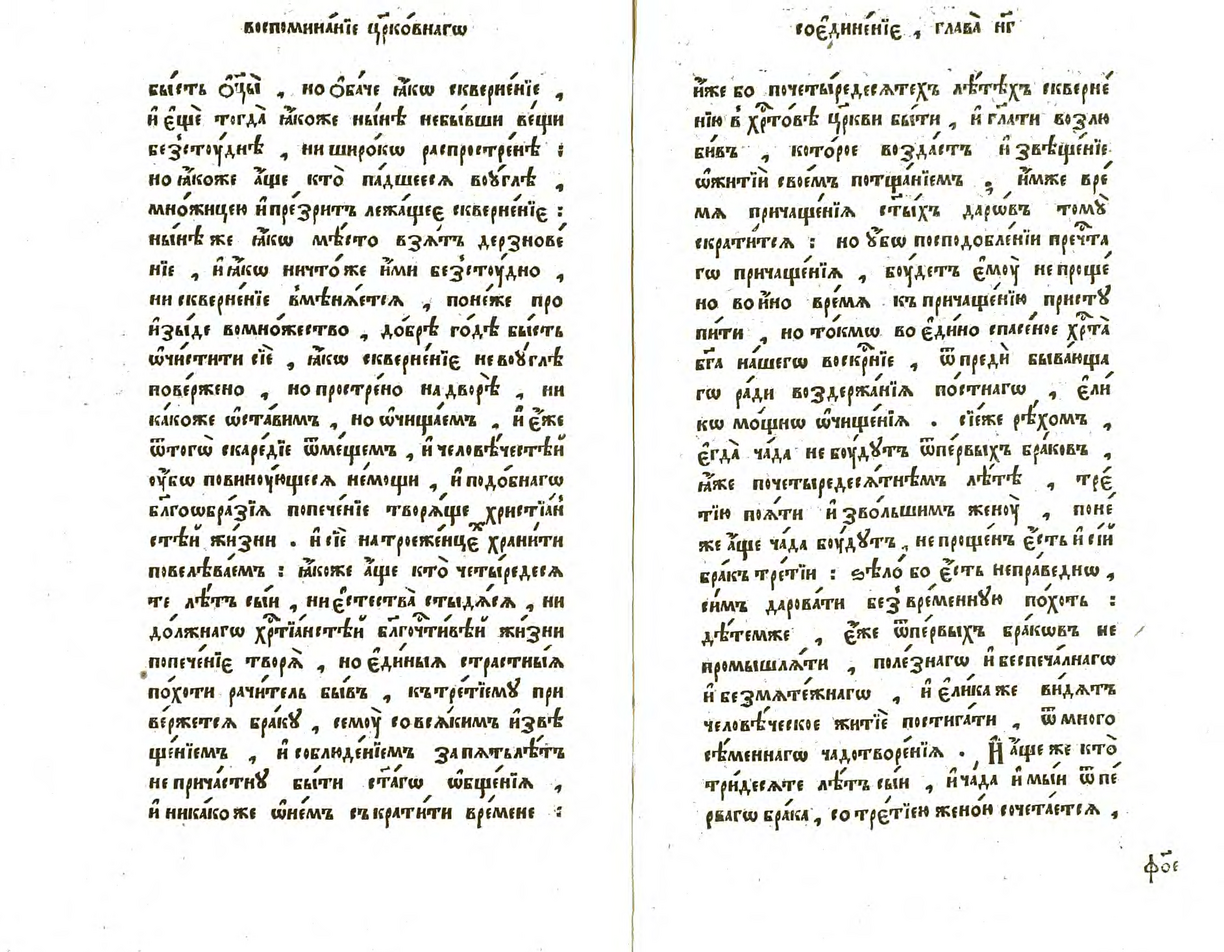 воспомина́нїе црко́внагѡ
бы́сть ѻ҆ц҃ы̀ , но ѻ҆ба́че ꙗ҆́кѡ скверне́нїе ,
и҆ є҆щѐ тогда̀ ꙗ҆́коже ны́нѣ небы́вши ве́щи
безсту́днѣ , ни широ́кѡ распростре́нѣ :
но ꙗ҆́коже а҆́ще кто̀ па́дшееся воу́глѣ ,
мно́жицею и҆ пре́зритъ лежа́щеє скверне́нїє :
ны́нѣ же ꙗ҆́кѡ мѣ́сто взѧ́тъ дерзнове́
нїе , и҆ ꙗ҆́кѡ ничто́же и҆́ми безсту́дно ,
ни скверне́нїе вмѣнѧ́етсѧ , поне́же про
и҆зы́де вомно́жество , до́брѣ го́дѣ бы́сть
ѡ҆чи́стити сїѐ , ꙗ҆́кѡ скверне́нїє не воу́глѣ
пове́ржено , но простре́но на дво́рѣ , ни
ка́коже ѡ҆ста́вимъ , но ѡ҆чища́емъ , и҆ є҆́же
ѿтогѡ̀ скаре́дїе ѿме́щемъ , и҆ человѣ́честѣй
оу҆́бѡ повиноу́ющесѧ не́мощи , и҆ подо́бнагѡ
бл҃гоѡбра́зїѧ попече́нїе творѧ́ще христїа́н
стѣй жи́зни . и҆ сїѐ на троеже́нцєх храни́ти
повелѣва́емъ : ꙗ҆́коже а҆́ще кто̀ четы́редесѧ
те лѣ́тъ сы́и , ни є҆стества̀ стыдѧ́сѧ , ни
до́лжнагѡ хр҃тїа́нстѣй бл҃гочти́вѣй жи́зни
попече́нїє творѧ̀ , но є҆ди́ныѧ стра́стныѧ
по́хоти рачи́тель бы́въ , къ тре́тїемꙋ при
ве́ржетсѧ бра́кꙋ , семоу̀ совсѧ́кимъ и҆звѣ
ще́нїемъ , и҆ соблюде́нїемъ за пѧ́тьлѣ́тъ
не прича́стнꙋ бы́ти ст҃а́гѡ ѡ҆бще́нїѧ ,
и҆ ника́коже ѡ҆не́мъ съкрати́ти вре́мене :
соєдине́нїє , глава̀ н҃г
и҆́же бо почеты́редесѧтехъ лѣ́тѣхъ скверне́
нїю в хр҃то́вѣ цр҃кви бы́ти , и҆ гл҃ати возлю
би́въ , кото́рое возда́стъ и҆звѣще́нїе
ѡ҆житїи свое́мъ потща́нїемъ , и҆́мже вре́
мѧ причаще́нїѧ ст҃ы́хъ даро́въ томꙋ̀
скрати́тсѧ : но оу҆́бѡ посподобле́нїи пречⷭ҇та
гѡ причаще́нїѧ , боу́детъ є҆моу̀ не проще́
но во и҆́но вре́мѧ къ причаще́нїю пристꙋ
пи́ти , но то́кмѡ во є҆ди́но спасе́ное хр҃та̀
бг҃а на́шегѡ воскр҃нїе , ѿ предѝ быва́юща
гѡ ра́ди воздержа́нїѧ по́стнагѡ , є҆ли́
кѡ мо́щнѡ ѡ҆чище́нїѧ . сїе́же рѣ́хомъ ,
є҆гда̀ ча́да не боу́дутъ ѿпе́рвыхъ бра́ковъ ,
ꙗ҆́же почеты́редесѧ́тнѣмъ лѣ́тѣ , тре́
тїю поѧ́ти и҆зво́льшимъ женоу̀ , поне́
же а҆́ще ча́да боу́дутъ , не проще́нъ є҆́сть и҆ сі́й
бра́къ тре́тїи : ѕѣло́ бо є҆́сть непра́веднѡ ,
си́мъ дарова́ти безвре́меннꙋю по́хоть :
дѣ́темже , є҆́же ѿпе́рвыхъ бра́кѡвъ не
промышлѧ́ти , поле́знагѡ и҆ беспеча́лнагѡ
и҆ безмѧте́жнагѡ , и҆ є҆ли́ка же ви́дѧтъ
человѣ́ческое житїѐ постига́ти , ѿ много
сѣ́меннагѡ чадотворе́нїѧ . И҆ а҆́ще же кто̀
три́десѧте лѣ́тъ сы́и , и҆ ча́да и҆мы́и ѿ пе́
рвагѡ бра́ка , со тре́тїею жено́ю сочета́етсѧ ,
фо҃е